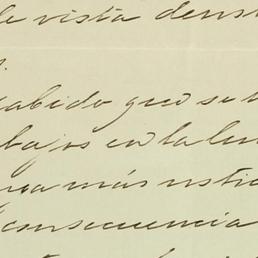 de vista den
cabido que se h
bajos en la lu
rea más util
consecuencia